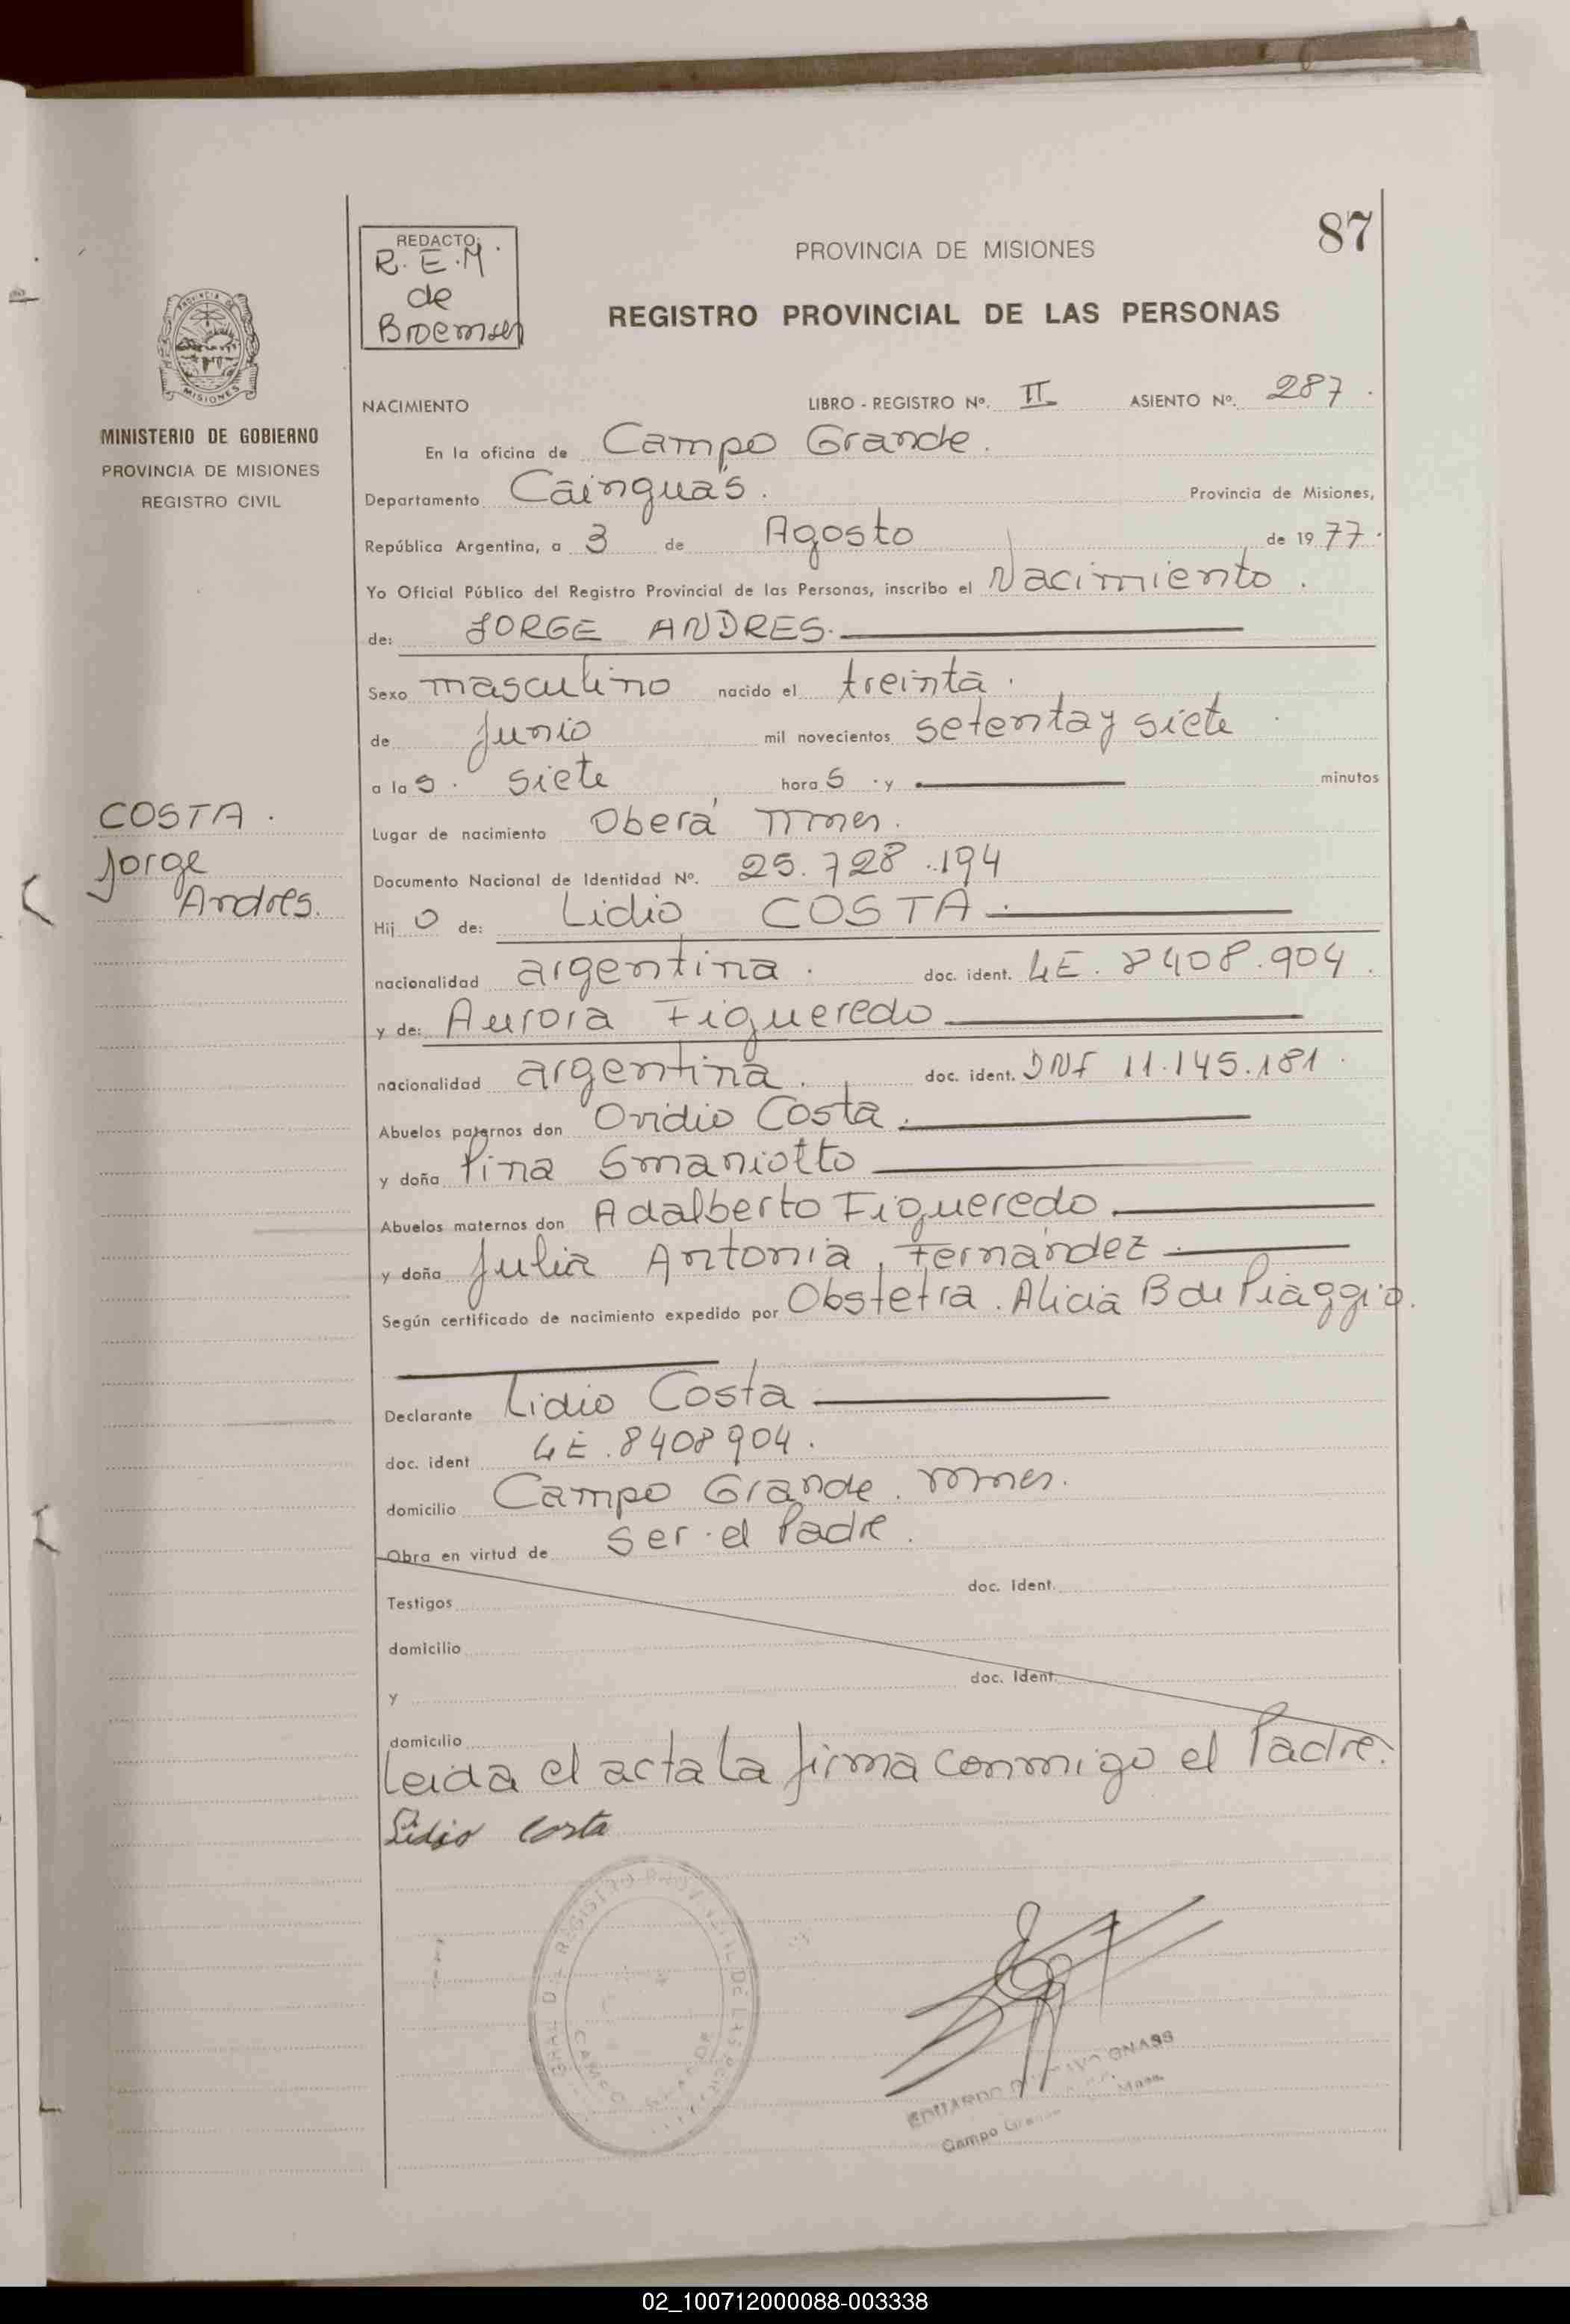 87
REDACTO:
R.E.M.
de
Broemsen
PROVINCIA DE MISIONES
REGISTRO PROVINCIAL DE LAS PERSONAS
PROVINCIA DE
MISIONES
MINISTERIO DE GOBIERNO
PROVINCIA DE MISIONES
REGISTRO CIVIL
NACIMIENTO LIBRO - REGISTRO Nº. II ASIENTO Nº. 287.
En la oficina de Campo Grande.
Departamento Cainguás. Provincia de Misiones,
República Argentina, a 3 de Agosto de 1977.
Yo Oficial Público del Registro Provincial de las Personas, inscribo el Nacimiento.
de: JORGE ANDRES.
Sexo masculino nacido el treinta.
de Junio mil novecientos setenta y siete
a las. siete horas. y minutos
COSTA.
Jorge
Andres.
Lugar de nacimiento Oberá Mnes.
Documento Nacional de Identidad Nº. 25.728.194
Hijo de: Lidio COSTA.
nacionalidad argentina. doc. ident. LE. 8408.904.
y de: Aurora Figueredo
nacionalidad argentina. doc. ident. DNI 11.145.181.
Abuelos paternos don Ovidio Costa.
y doña Pina Smaniotto
Abuelos maternos don Adalberto Figueredo.
y doña Julia Antonia Fernández.
Según certificado de nacimiento expedido por Obstetra. Alicia B de Piaggio.
Declarante Lidio Costa
doc. ident LE.8408904.
domicilio Campo Grande. Mnes.
Obra en virtud de ser el Padre.
Testigos doc. Ident.
domicilio
y doc. Ident.
domicilio
Leida el acta la firma conmigo el Padre.
Lidio Costa
REGISTRO PROVINCIAL DE LAS
CAMPO GRANDE
EDUARDO GNASS
Campo Grande Mnes.
02_100712000088-003338